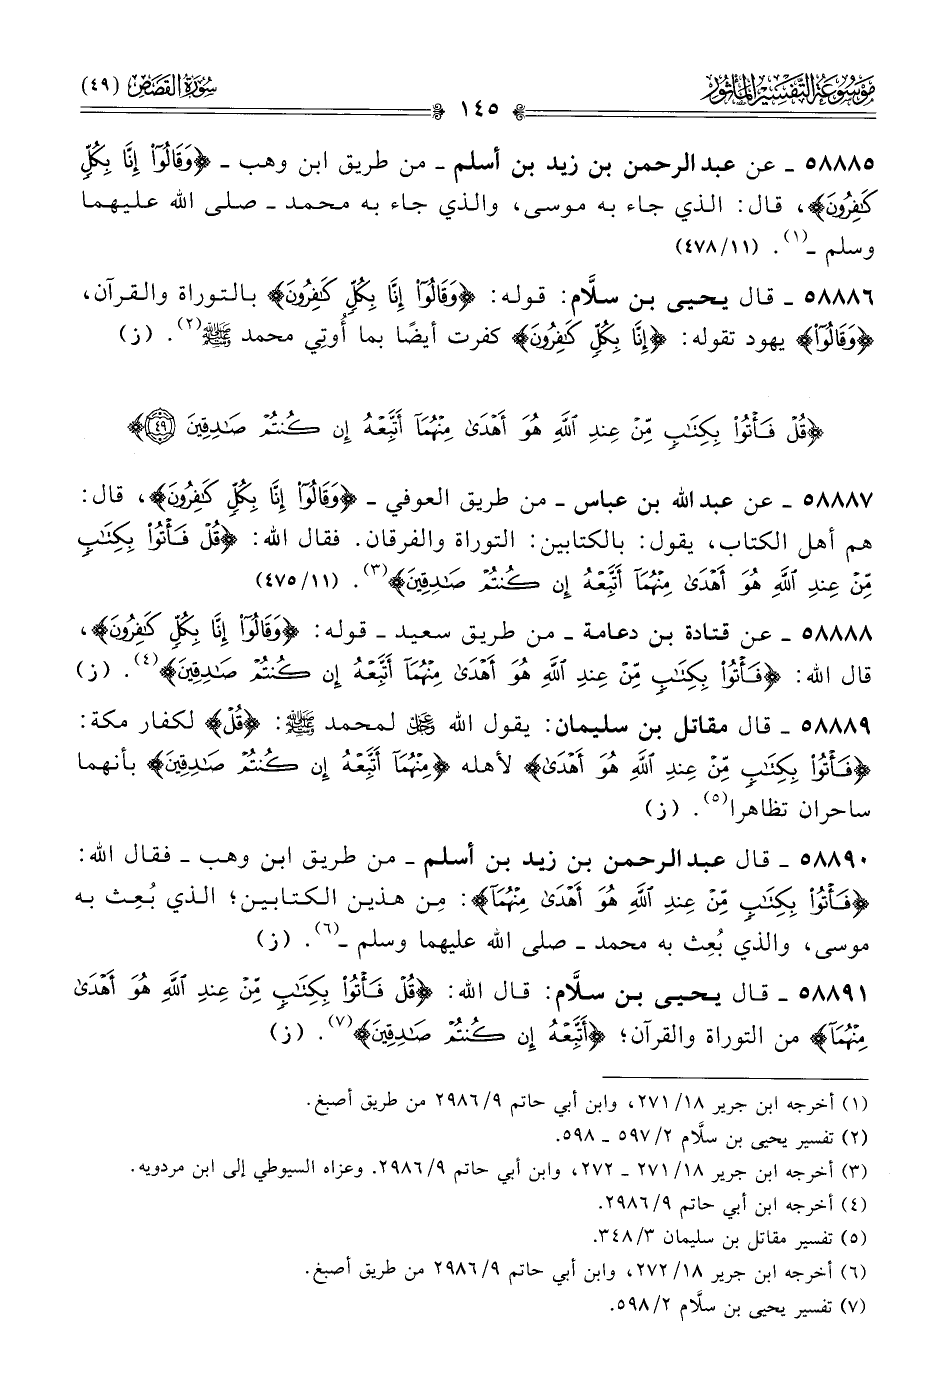 مَوْسُوعَة التَّفْسِير المَأْثُور
سُورَةُ القَصَصِ (٤٩)
١٤٥
٥٨٨٨٥ ـ عن عبد الرحمن بن زيد بن أسلم ـ من طريق ابن وهب ـ ﴿وَقَالُوٓا۟ إِنَّا بِكُلٍّ
كَـٰفِرُونَ﴾، قال: الذي جاء به موسى، والذي جاء به محمد ـ صلى الله عليهما
وسلم ـ(١). (١١/ ٤٧٨)
٥٨٨٨٦ ـ قال يحيى بن سلَّام: قوله: ﴿وَقَالُوٓا۟ إِنَّا بِكُلٍّ كَـٰفِرُونَ﴾ بالتوراة والقرآن،
﴿وَقَالُوٓا۟﴾ يهود تقوله: ﴿إِنَّا بِكُلٍّ كَـٰفِرُونَ﴾ كفرت أيضًا بما أُوتي محمد ﷺ(٢). (ز)
﴿قُلْ فَأْتُوا۟ بِكِتَـٰبٍ مِّنْ عِندِ ٱللَّهِ هُوَ أَهْدَىٰ مِنْهُمَآ أَتَّبِعْهُ إِن كُنتُمْ صَـٰدِقِينَ ٤٩﴾
٥٨٨٨٧ ـ عن عبد الله بن عباس ـ من طريق العوفي ـ ﴿وَقَالُوٓا۟ إِنَّا بِكُلٍّ كَـٰفِرُونَ﴾، قال:
هم أهل الكتاب، يقول: بالكتابين: التوراة والفرقان. فقال الله: ﴿قُلْ فَأْتُوا۟ بِكِتَـٰبٍ
مِّنْ عِندِ ٱللَّهِ هُوَ أَهْدَىٰ مِنْهُمَآ أَتَّبِعْهُ إِن كُنتُمْ صَـٰدِقِينَ﴾(٣). (١١/ ٤٧٥)
٥٨٨٨٨ ـ عن قتادة بن دعامة ـ من طريق سعيد ـ قوله: ﴿وَقَالُوٓا۟ إِنَّا بِكُلٍّ كَـٰفِرُونَ﴾،
قال الله: ﴿فَأْتُوا۟ بِكِتَـٰبٍ مِّنْ عِندِ ٱللَّهِ هُوَ أَهْدَىٰ مِنْهُمَآ أَتَّبِعْهُ إِن كُنتُمْ صَـٰدِقِينَ﴾(٤). (ز)
٥٨٨٨٩ ـ قال مقاتل بن سليمان: يقول الله ﷻ لمحمد ﷺ: ﴿قُلْ﴾ لكفار مكة:
﴿فَأْتُوا۟ بِكِتَـٰبٍ مِّنْ عِندِ ٱللَّهِ هُوَ أَهْدَىٰ﴾ لأهله ﴿مِنْهُمَآ أَتَّبِعْهُ إِن كُنتُمْ صَـٰدِقِينَ﴾ بأنهما
ساحران تظاهرا(٥). (ز)
٥٨٨٩٠ ـ قال عبد الرحمن بن زيد بن أسلم ـ من طريق ابن وهب ـ فقال الله:
﴿فَأْتُوا۟ بِكِتَـٰبٍ مِّنْ عِندِ ٱللَّهِ هُوَ أَهْدَىٰ مِنْهُمَآ﴾: مِن هذين الكتابين؛ الذي بُعِث به
موسى، والذي بُعِث به محمد ـ صلى الله عليهما وسلم ـ(٦). (ز)
٥٨٨٩١ ـ قال يحيى بن سلَّام: قال الله: ﴿قُلْ فَأْتُوا۟ بِكِتَـٰبٍ مِّنْ عِندِ ٱللَّهِ هُوَ أَهْدَىٰ
مِنْهُمَآ﴾ من التوراة والقرآن؛ ﴿أَتَّبِعْهُ إِن كُنتُمْ صَـٰدِقِينَ﴾(٧). (ز)
(١) أخرجه ابن جرير ١٨/ ٢٧١، وابن أبي حاتم ٩/ ٢٩٨٦ من طريق أصبغ.
(٢) تفسير يحيى بن سلَّام ٢/ ٥٩٧ ـ ٥٩٨.
(٣) أخرجه ابن جرير ١٨/ ٢٧١ ـ ٢٧٢، وابن أبي حاتم ٩/ ٢٩٨٦. وعزاه السيوطي إلى ابن مردويه.
(٤) أخرجه ابن أبي حاتم ٩/ ٢٩٨٦.
(٥) تفسير مقاتل بن سليمان ٣/ ٣٤٨.
(٦) أخرجه ابن جرير ١٨/ ٢٧٢، وابن أبي حاتم ٩/ ٢٩٨٦ من طريق أصبغ.
(٧) تفسير يحيى بن سلَّام ٢/ ٥٩٨.